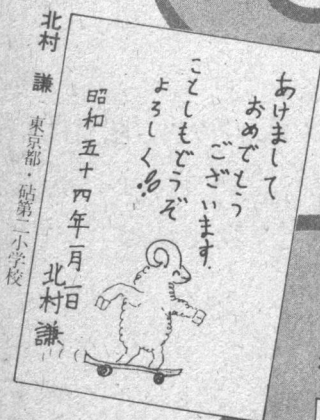 あけまして
おめでとう
ございます.
ことしもどうぞ
よろしく!!
昭和五十四年一月一日
北村謙
北村 謙 東京都・砧第二小学校